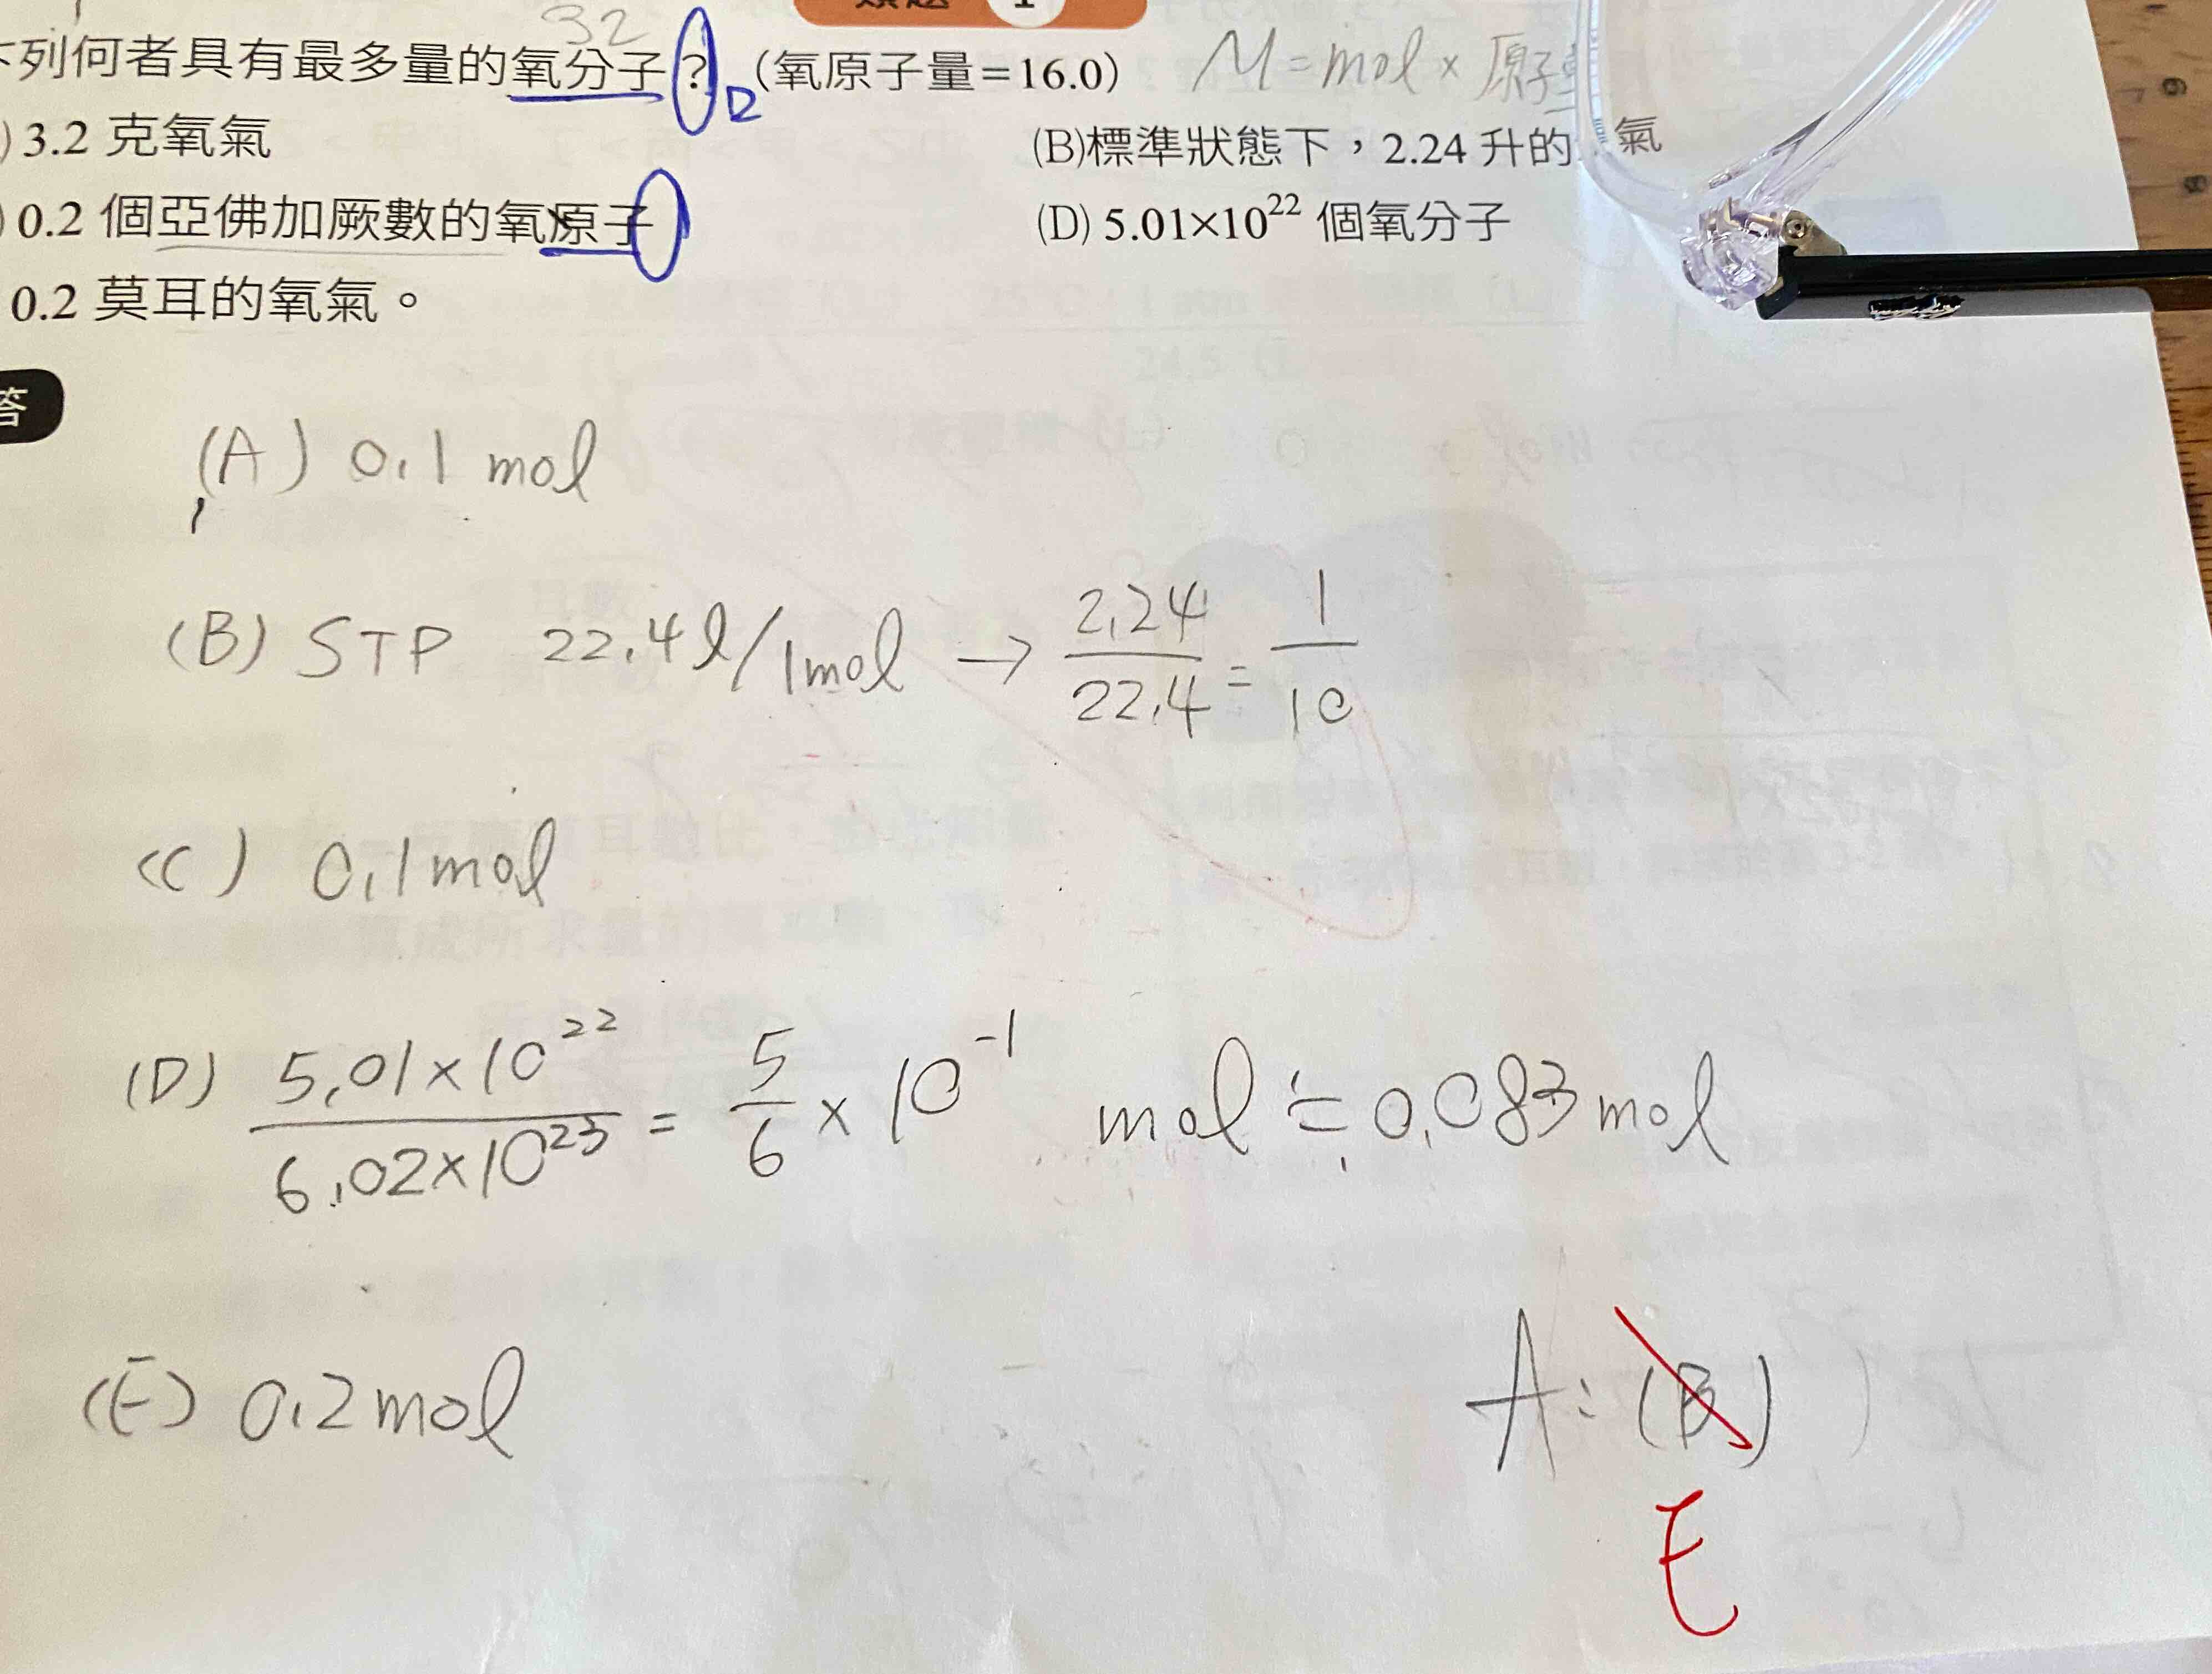 類題 1
32
下列何者具有最多量的氧分子?(氧原子量=16.0)
D
M=mol× 原子
) 3.2 克氧氣
(B)標準狀態下,2.24 升的 氣
) 0.2 個亞佛加厥數的氧原子
(D) 5.01×10²² 個氧分子
0.2 莫耳的氧氣。
答
(A) 0.1 mol
(B) STP 22.4l/1mol → 2.24/22.4 = 1/10
(C) 0.1mol
(D) 5.01×10²²/6.02×10²³ = 5/6 × 10⁻¹ mol ≒ 0.083mol
(E) 0.2mol
A: (B) )
E